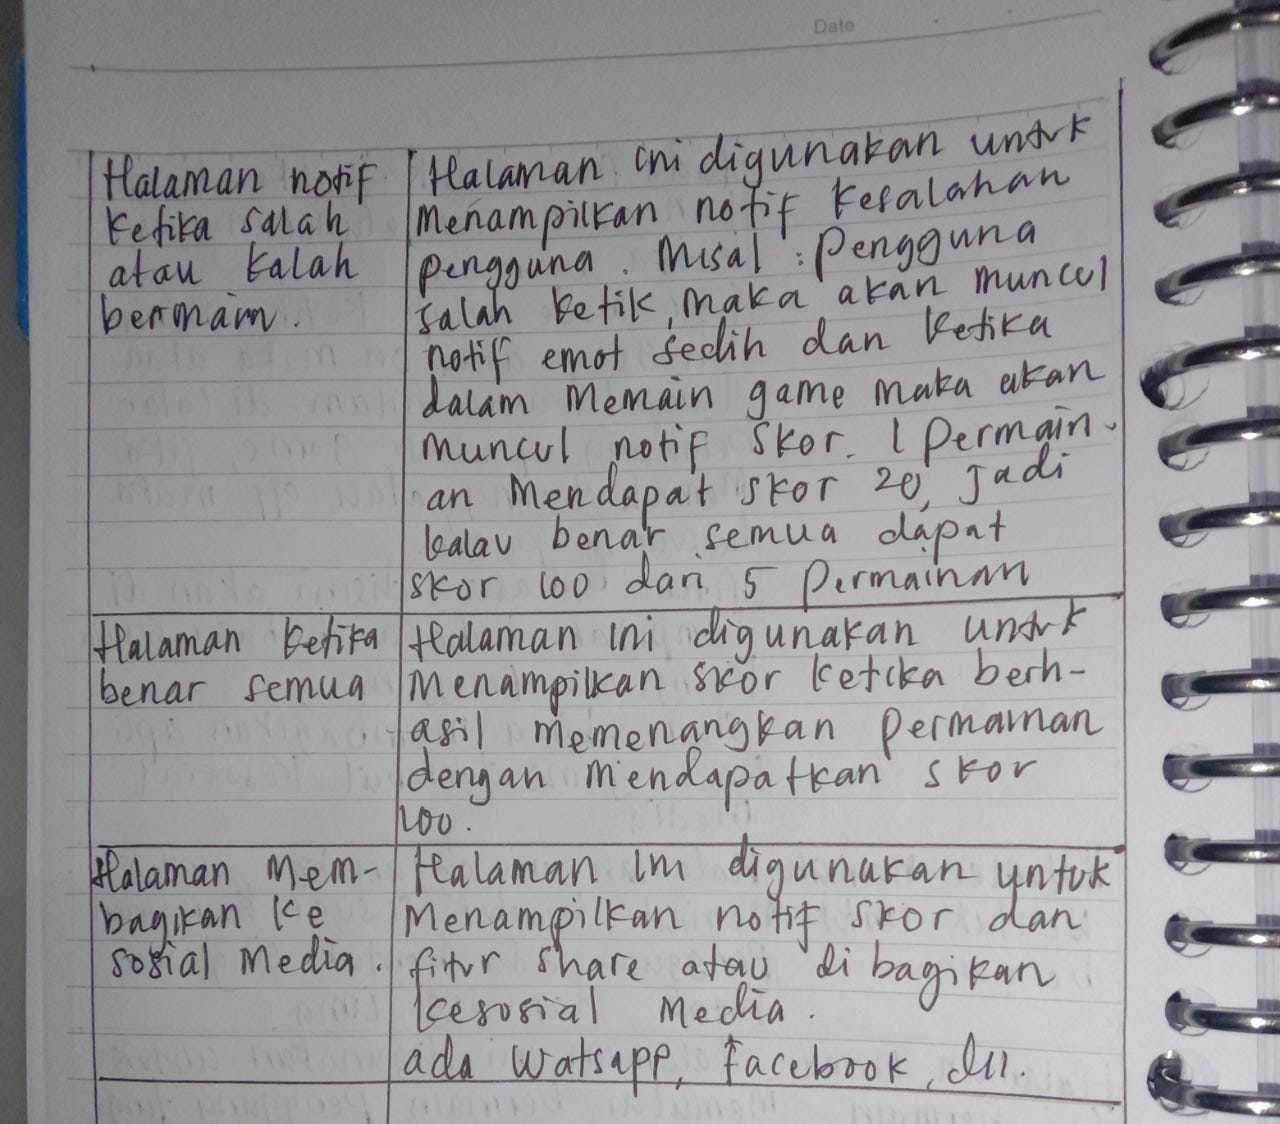 Date
Halaman notif
ketika salah
atau kalah
bermain.
Halaman ini digunakan untuk
menampilkan notif kesalahan
pengguna. Misal : pengguna
salah ketik, maka akan muncul
notif emot sedih dan ketika
dalam memain game maka akan
muncul notif skor. 1 permain-
an mendapat skor 20, jadi
kalau benar semua dapat
skor 100 dari 5 permainan
Halaman ketika
benar semua
Halaman ini digunakan untuk
menampilkan skor ketika berh-
asil memenangkan permainan
dengan mendapatkan skor
100.
Halaman mem-
bagikan ke
sosial media.
Halaman ini digunakan untuk
menampilkan notif skor dan
fitur share atau di bagikan
kesosial media.
ada watsapp, facebook, dll.